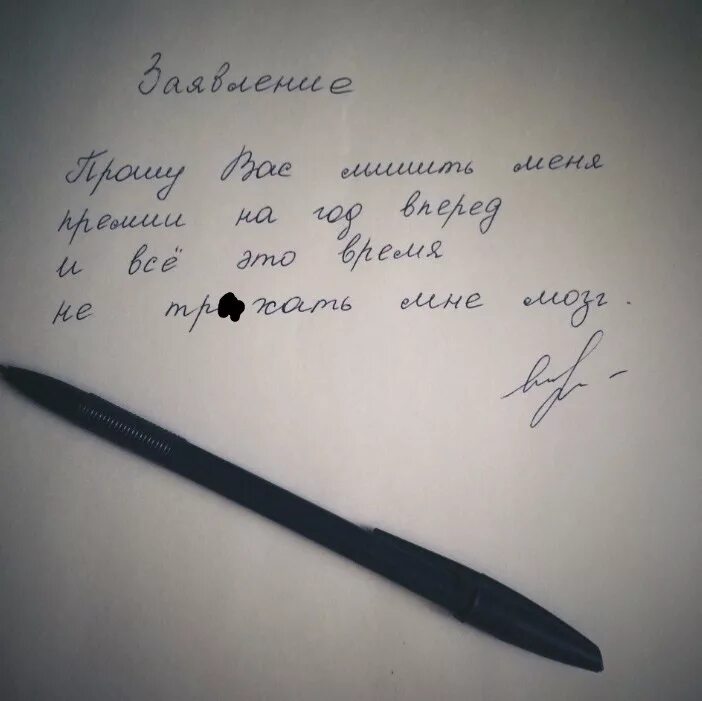 Заявление
Прошу Вас лишить меня
премии на год вперед
и всё это время
не тр хать мне мозг.